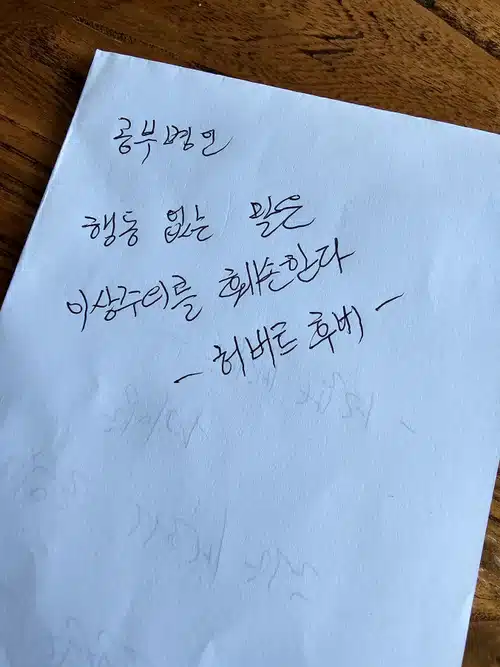 공부명언
행동 없는 말은
이상주의를 훼손한다
- 허버트 후버 -